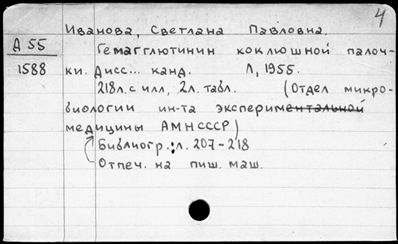 4
Иванова, Светлана Павловна.
А 55
1588
Гемагглютинин коклюшной палоч-
ки. Дисс... канд. Л, 1955.
218л. с илл, 2л. табл. (Отдел микро-
биологии ин-та экспериментальной
медицины АМНСССР)
Библиогр.: л. 207-218
Отпеч. на пиш. маш.